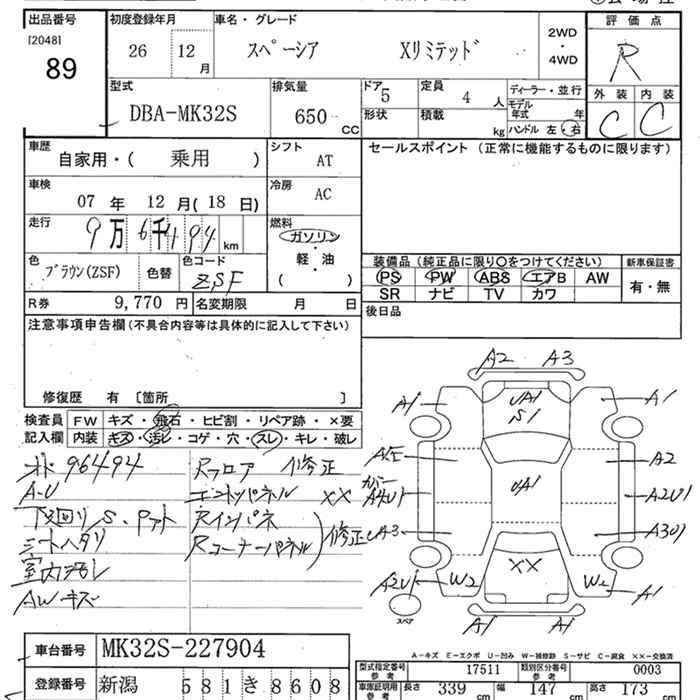 出品番号 初度登録年月 車名・グレード 評価点
[2048] 26 12月 スペーシア Xリミテッド 2WD・4WD R
89
型式 排気量 ドア 5 定員 4 人 ディーラー・並行 外装 内装
DBA-MK32S 650 CC 形状 積載 kg モデル年式 年 C C
ハンドル 左・右
車歴 自家用・( 乗用 ) シフト AT セールスポイント (正常に機能するものに限ります)
車検 07 年 12 月( 18 日) 冷房 AC
走行 9万6千494 km 燃料 ガソリン・軽・油 ( )
色 ブラウン(ZSF) 色替 色コード ZSF
装備品 (純正品に限り○をつけてください) 新車保証書
PS PW ABS エアB AW 有・無
SR ナビ TV カワ
R券 9,770 円 名変期限 月 日 後日品
注意事項申告欄 (不具合内容等は具体的に記入して下さい)
修復歴 有 〔箇所 〕
検査員 FW キズ・飛石・ヒビ割・リペア跡・×要
記入欄 内装 キズ・汚レ・コゲ・穴・スレ・キレ・破レ
96494 Rフロア 修正
A-U エンドパネル XX
下廻り/S・ Rインパネ
シートヘタリ Rコーナーパネル 修正
室内汚レ
AWキズ
A2 A3
A1 UA1 A1
S1
A2
UA1 A2U1
UA3 A3U1
XX
A2U1 W2 W2 A1
スペア A1 A1
A-キズ E-エクボ U-凹み W-補修跡 S-サビ C-腐食 XX-交換済
車台番号 MK32S-227904
登録番号 新潟 581 き 8608
型式指定番号 参考 17511 類別区分番号 参考 0003
車庫証明用 参考 長さ 339 cm 幅 147 cm 高さ 173 cm